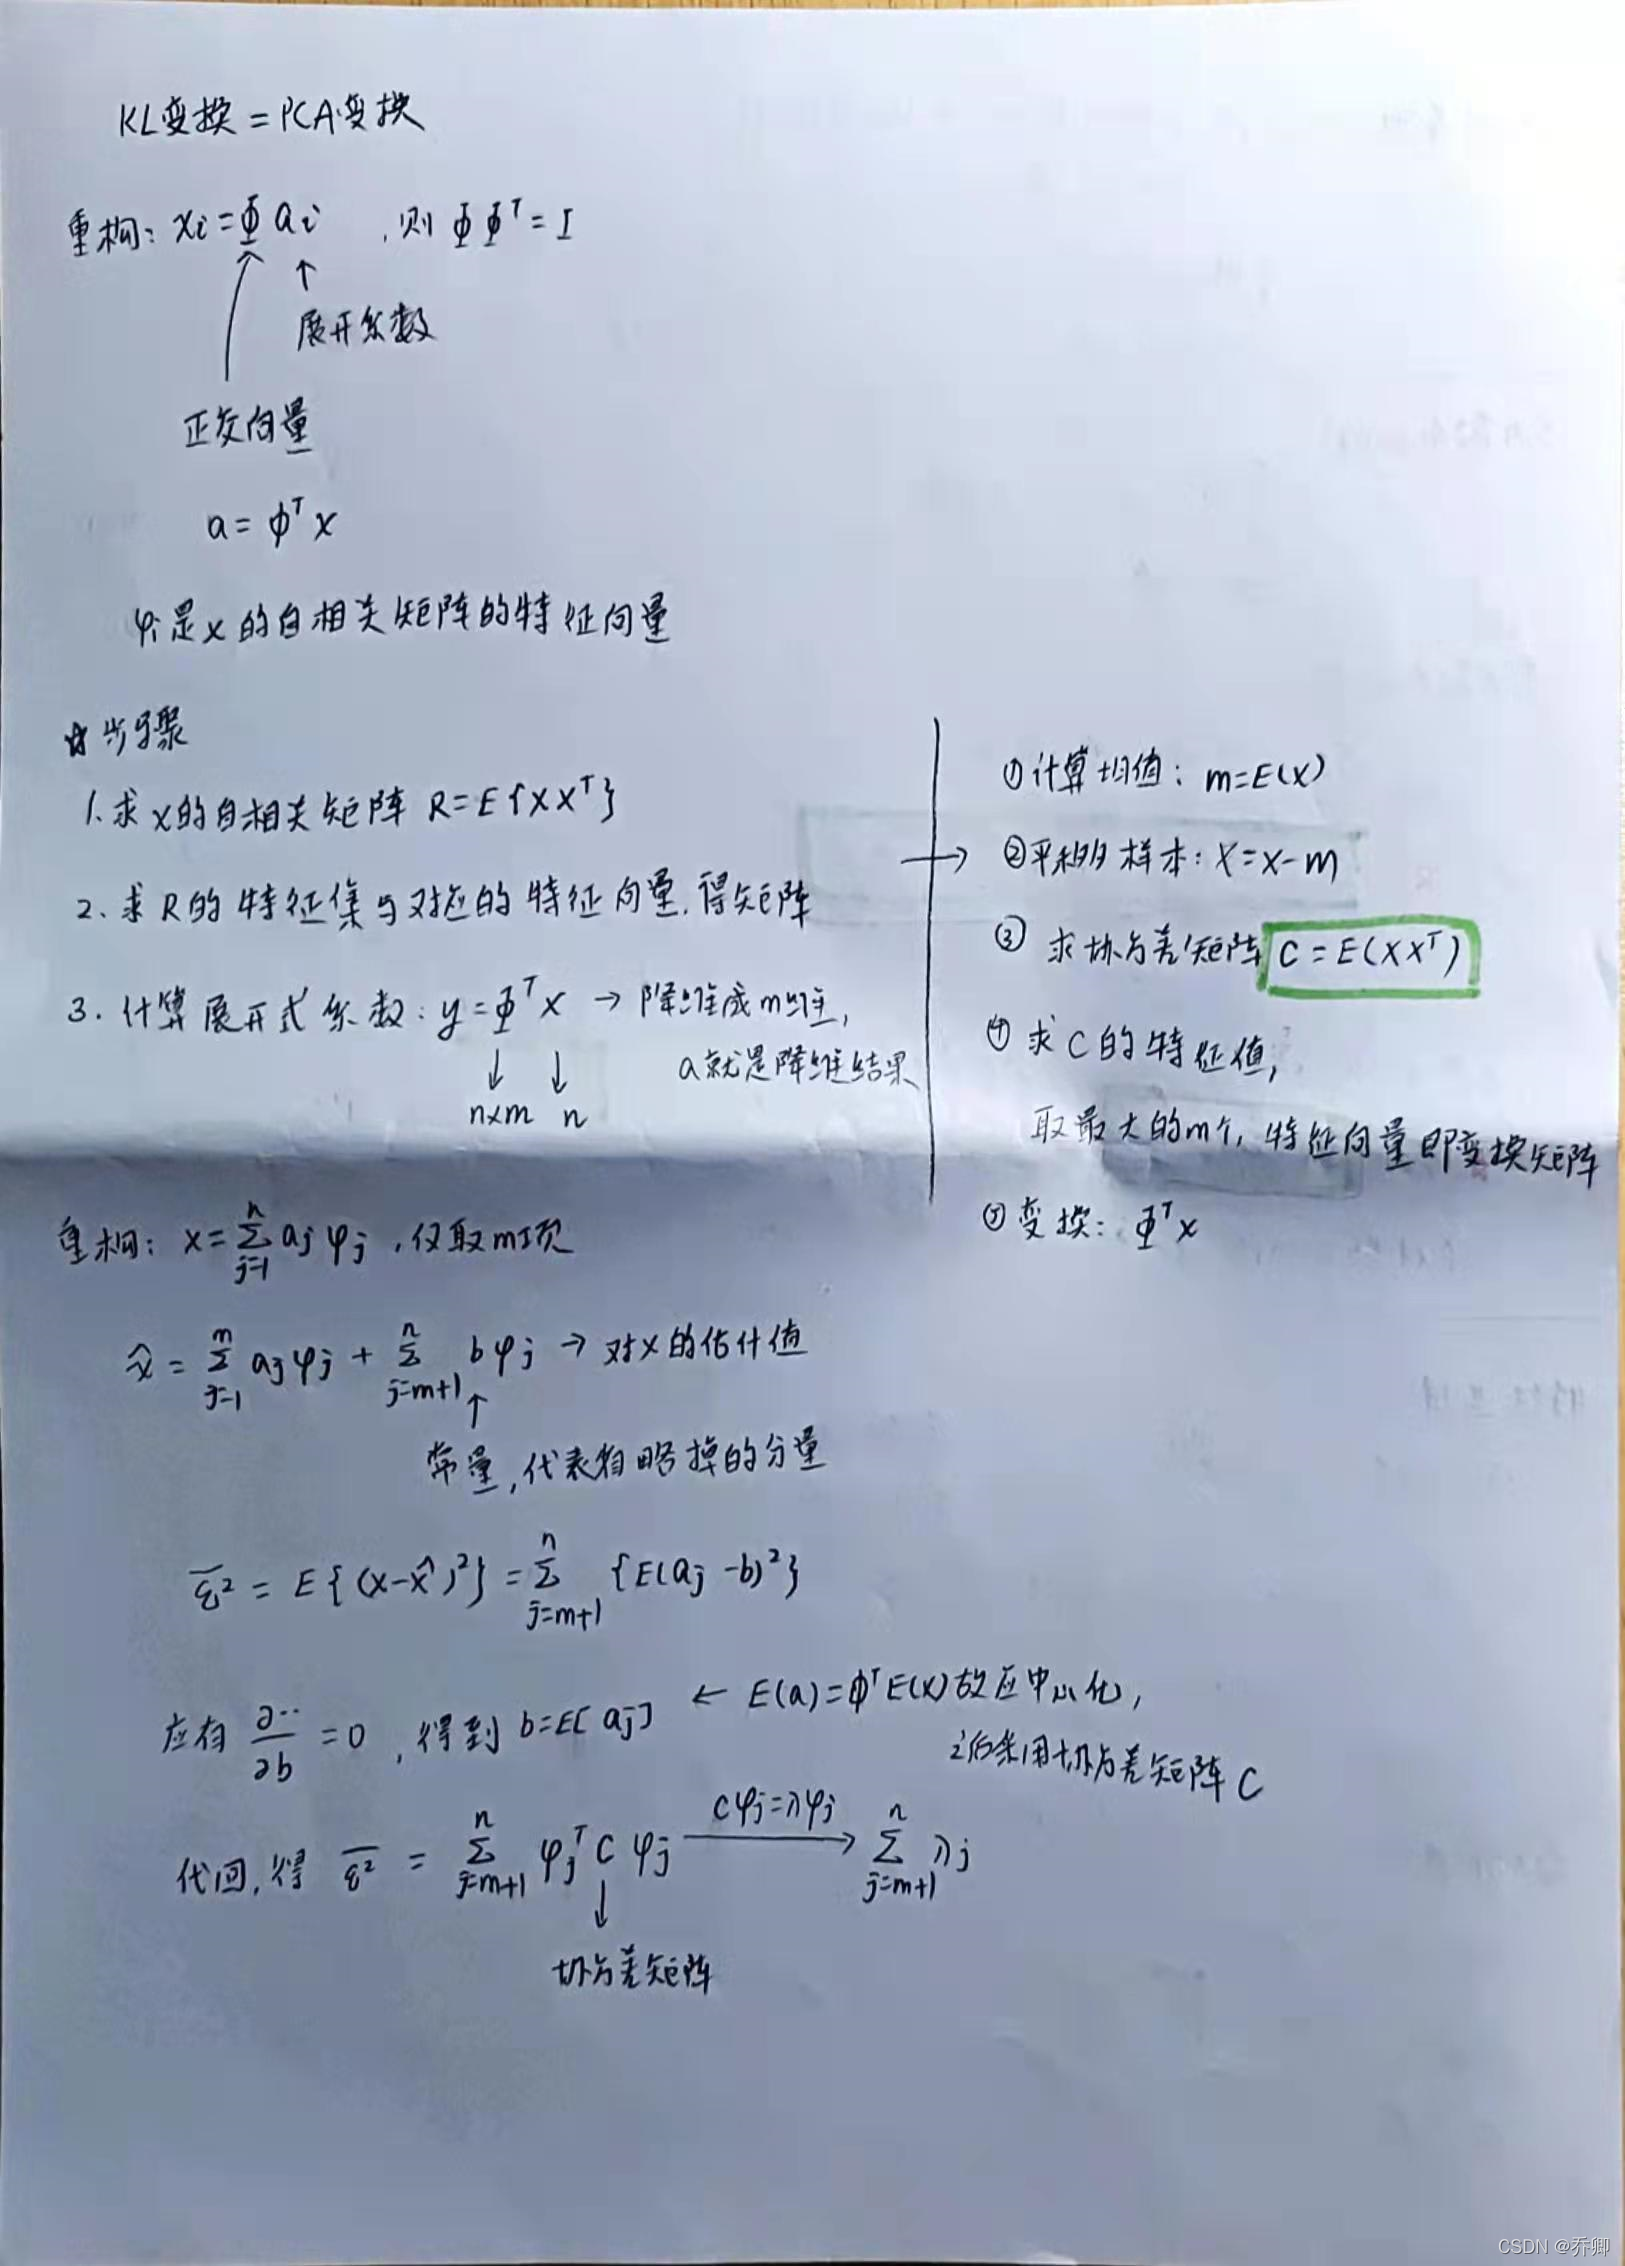 KL变换=PCA变换
重构：xi=Φ ai ，则 Φ Φ^T = I
展开系数
正交向量
a = φ^T x
φi是x的自相关矩阵的特征向量
☆步骤
1.求x的自相关矩阵 R=E{XX^T}
2、求R的特征集与对应的特征向量，得矩阵
3、计算展开式系数：y=Φ^T x → 降维成m维，
a就是降维结果
n×m n
①计算均值：m=E(x)
②平移样本：X=x-m
③ 求协方差矩阵 C=E(XX^T)
④求C的特征值，
取最大的m个，特征向量即变换矩阵
⑤变换：Φ^T x
重构：x=∑_{j=1}^{n} aj φj ，仅取m项
x̂ = ∑_{j=1}^{m} aj φj + ∑_{j=m+1}^{n} b φj → 对x的估计值
常量，代表省略掉的分量
ε² = E{(x-x̂)²} = ∑_{j=m+1}^{n} {E(aj -b)²}
应有 ∂··/∂b =0 ，得到 b=E[aj] ← E(a)=φ^T E(x)故应中心化，
之后采用协方差矩阵C
代回，得 ε² = ∑_{j=m+1}^{n} φj^T C φj Cφj=λφj → ∑_{j=m+1}^{n} λj
协方差矩阵
CSDN @乔卿